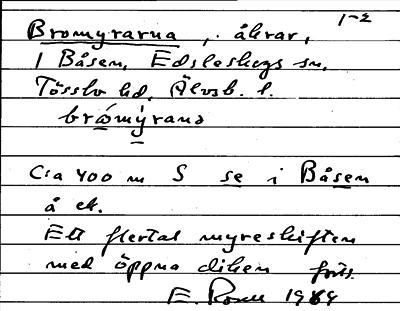 1-2
Bromyrarna, åkrar,
i Båsen, Edsleskogs sn,
Tössbo hd, Älvsb. l.
brømy̍rana
Ca 400 m S se i Båsen
å ek.
Ett flertal myreskiften
med öppna diken forts.
E. 1969